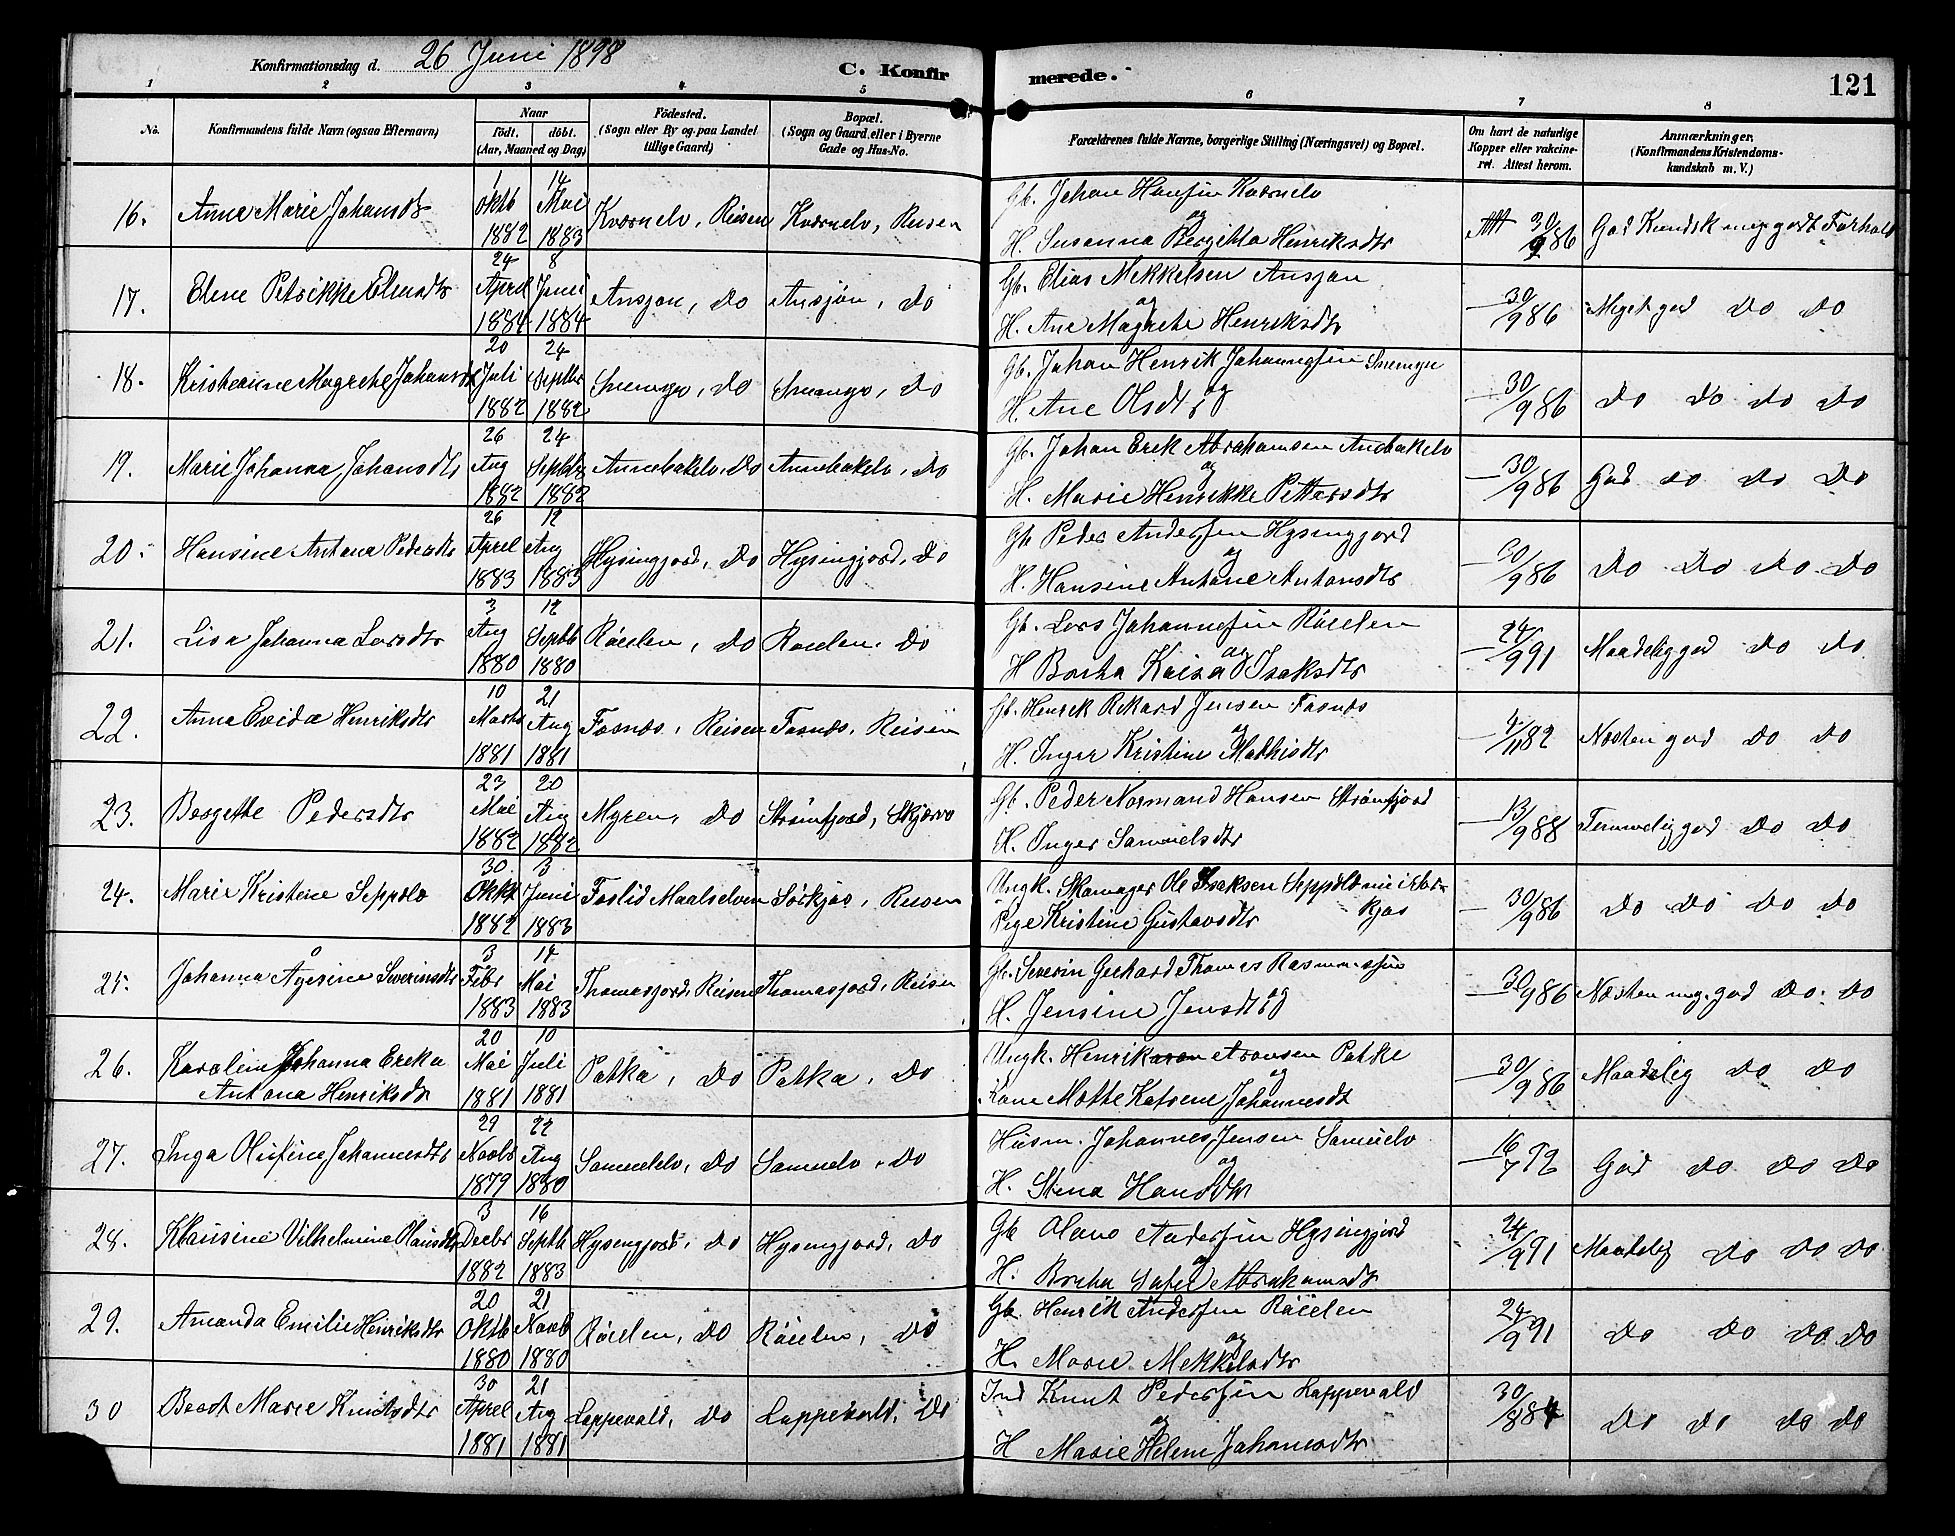 Konfirmationsdag d. 26 Juni 1898
C. Konfir merede.
121
1 2 3 4 5 6 7 8
No.
Konfirmandens fulde Navn (ogsaa Efternavn)
Naar
født. døbt.
(Aar, Maaned og Dag)
Fødested.
(Sogn eller By og paa Landet
tillige Gaard)
Bopæl.
(Sogn og Gaard, eller i Byerne
Gade og Hus-No.
Forældrenes fulde Navne, borgerlige Stilling (Næringsvei) og Bopæl.
Om havt de naturlige
Kopper eller vakcine-
ret. Attest herom.
Anmærkninger.
(Konfirmandens Kristendoms-
kundskab m. V.)
16. Anne Marie Johansdtr 1 Oktb 1882 14 Mai 1883 Kvœnelv, Reisen Kvœnelv, Reisen
Gb. Johan Hansen Kvœnelv
og
H. Susanna Bergitta Henriksdtr
Att 30/9 86 God Kundsk meg godt Forhold
17. Elene Petrikke Eliasdtr 24 April 1884 8 Juni 1884 Ansjøn, Do Ansjøn, Do
Gb. Elias Mekkelsen Ansjøn
og
H. Ane Magrete Henriksdtr
30/9 86 Meget god Do Do
18. Kristianne Magrethe Johansdtr 20 Juli 1882 24 Septbr 1882 Snemyr, Do Snemyr, Do
Gb. Johan Henrik Johannesen Snemyr
og
H. Ane Olsdtr
30/9 86 Do Do Do Do
19. Marie Johanna Johansdtr 26 Aug 1882 24 Septbr 1882 Annebakelv, Do Annebakelv, Do
Gb. Johan Erik Abrahamsen Anebakelv
og
H. Marie Henrikke Pettersdtr
30/9 86 God Do Do Do
20. Hansine Antone Pedersdtr 26 April 1883 12 Aug 1883 Hysingjord, Do Hysingjord, Do
Gb Peder Andersen Hysingjord
og
H. Hansine Antone Antonsdtr
30/9 86 Do Do Do Do
21. Lisa Johanna Larsdtr 3 Aug 1880 12 Septb 1880 Røielen, Do Roielen, Do
Gb. Lars Johannesen Røielen
og
H Bertha Kaisa Isaksdtr
24/9 91 Maadelig god Do Do
22. Anna Evida Henriksdtr 10 Marts 1881 21 Aug 1881 Fosnes, Reisen Fosnes, Reisen
Gb. Henrik Rikard Jensen Fosnes
og
H. Inger Kristine Mathisdtr
/11 82 Næsten god Do Do
23. Bergethe Pedersdtr 23 Mai 1882 20 Aug 1882 Myren, Do Strømfjord, Skjærvø
Gb. Peder Normand Hansen Strømfjord
H. Inger Samuelsdtr
13/9 88 Temmelig god Do Do
24. Marie Kristine Seppola 30 Oktb 1882 3 Juni 1883 Foslid Maalselven Sørkjos, Reisen
Ungk. Skomager Ole Isaksen Seppola nu i Sør-
kjos
Pige Kristine Gustavsdtr
30/9 86 Do Do Do Do
25. Johanna Ågesine Severinsdtr 3 Febr 1883 14 Mai 1883 Thomasjord, Reisen Thomasjord, Reisen
Gb. Severin Gerhard Thomas Rasmussen
og
H. Jensine Jensdtr
30/9 86 Næsten meg. god Do. Do
26. Karoline Johanna Ereka
Antona Henriksdtr 20 Mai 1881 10 Juli 1881 Patka, Do Patka, Do
Ungk. Henrik Aronsen Patke
og
Kone Mette Katrene Johannesdt
30/9 86 Maadelig Do Do
27. Inga Olufine Johannesdtr 29 Novbr 1879 22 Aug 1880 Samuelelv, Do Samuelv, Do
Husm. Johannes Jensen Samuelv
og
H. Stena Hansdtr
16/7 92 God Do Do Do
28. Klausine Vilhelmine Olausdtr 3 Decbr 1882 16 Septb 1883 Hysengjord, Do Hysengjord, Do
Gb Olaus Andersen Hysingjord
og
H. Bretha Sofie Abrahamsdtr
24/9 91 Maadelig Do Do Do
29. Amanda Emilie Henriksdtr 20 Oktb 1880 21 Novb 1880 Røielen, Do Røielen, Do
Gb. Henrik Andersen Røielen
og
H. Marie Mekkelsdtr
24/9 91 Do Do Do Do
30 Beret Marie Knutsdtr 30 April 1881 21 Aug 1881 Lappevald, Do Lappevald, Do
Ind Knut Pedersen Lappevald
og
H Marie Helene Johannesdtr
30/8 84 Do Do Do Do